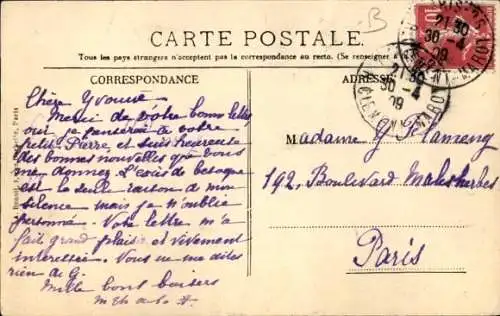 B
CARTE POSTALE.
Tous les pays étrangers n'acceptent pas la correspondance au recto. (Se renseigner à
CORRESPONDANCE
ADRESSE
21 30
30 -4
09
21 30
30 -4
09
10
Chère Yvonne
Merci de votre bonne lettre
oui je penserai à votre
petit Pierre, et suis heureuse
des bonnes nouvelles que vous
me donnez. L'excès de besogne
est la seule raison de mon
silence mais je n'oublie
personne. Votre lettre m'a
fait grand plaisir et vivement
intéressée. Vous ne me dites
rien de G.
Mille bons baisers
Madame G.
192, Boulevard Malesherbes
Paris